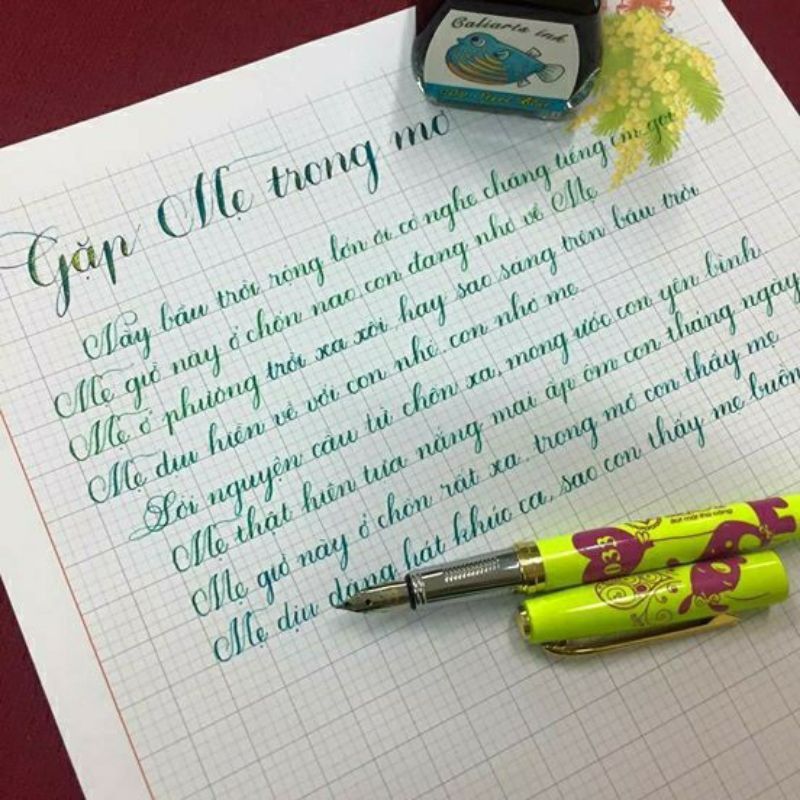 Caliarts ink
Gặp Mẹ trong mơ
Này bầu trời rộng lớn ơi, có nghe chăng tiếng em gọi
Mẹ giờ này ở chốn nao, con đang nhớ về Mẹ
Mẹ ở phương trời xa xôi, hay sao sáng trên bầu trời
Mẹ dịu hiền về với con nhé, con nhớ mẹ
Lời nguyện cầu từ chốn xa, mong ước con yên bình
Mẹ thật hiền tựa nắng mai ấp ôm con tháng ngày
Mẹ giờ này ở chốn rất xa, trong mơ con thấy mẹ
Mẹ dịu dàng hát khúc ca, sao con thấy mẹ buồn
Bút mài thầy Ánh
033